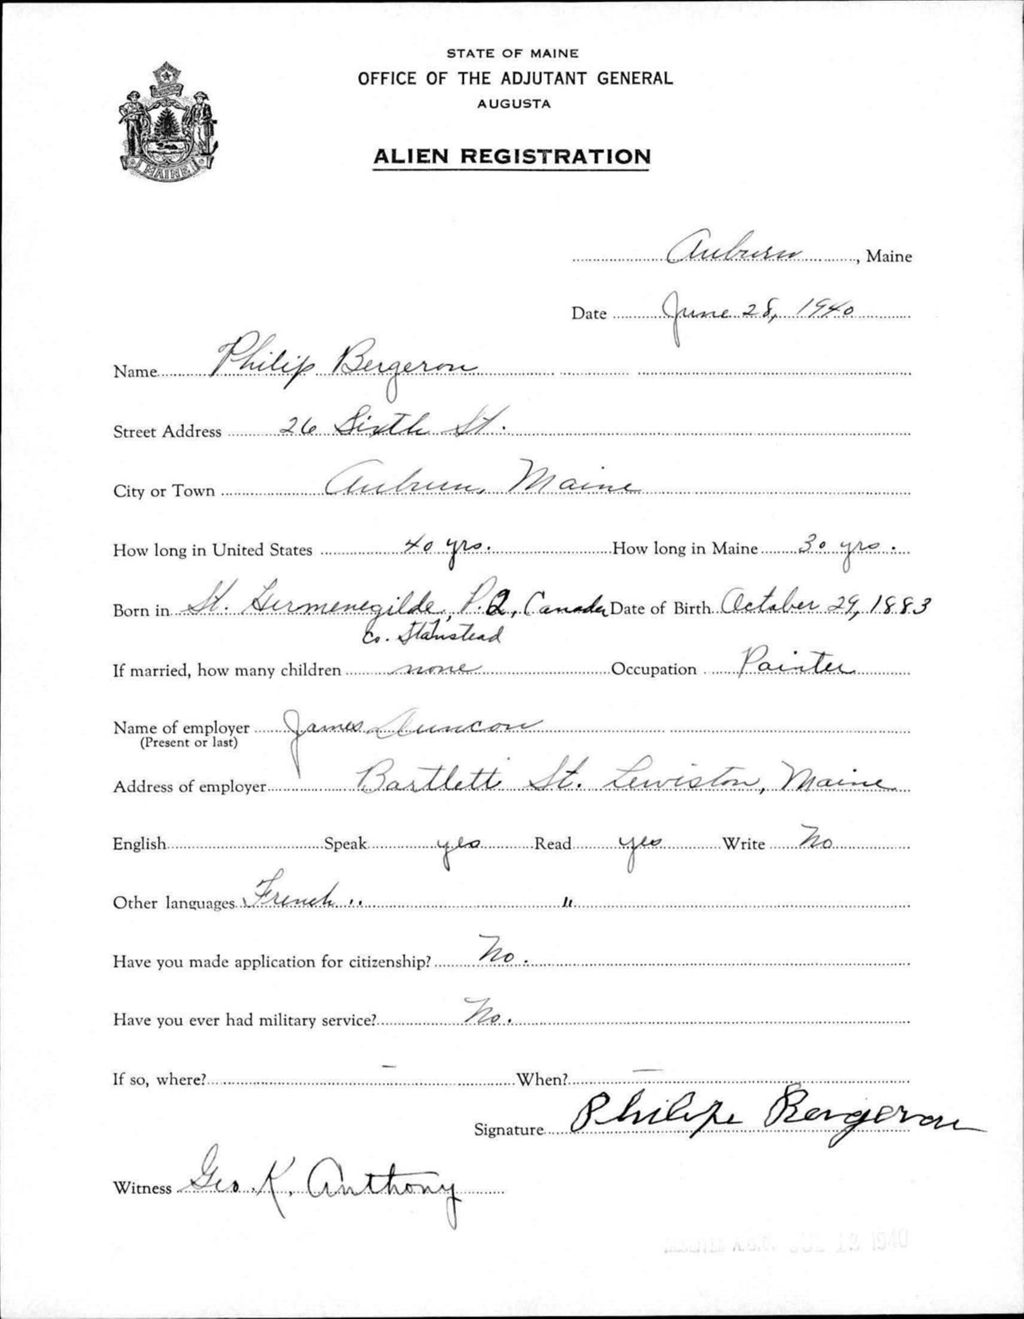 STATE OF MAINE
OFFICE OF THE ADJUTANT GENERAL
AUGUSTA
ALIEN REGISTRATION
MAINE
Auburn, Maine
Date June 28, 1940
Name Philip Bergeron
Street Address 26 Sixth St.
City or Town Auburn, Maine
How long in United States 40 yrs. How long in Maine 30 yrs.
Born in St. Hermenegilde, P.Q, Canada Date of Birth October 29, 1883
Co. Stanstead
If married, how many children none Occupation Painter
Name of employer James Duncan
(Present or last)
Address of employer Bartlett St. Lewiston, Maine
English Speak yes Read yes Write No
Other languages French " "
Have you made application for citizenship? No.
Have you ever had military service? No.
If so, where? - When? -
Signature Philipe Bergeron
Witness Geo. K. Anthony
A.G.O. JUL 12 1940